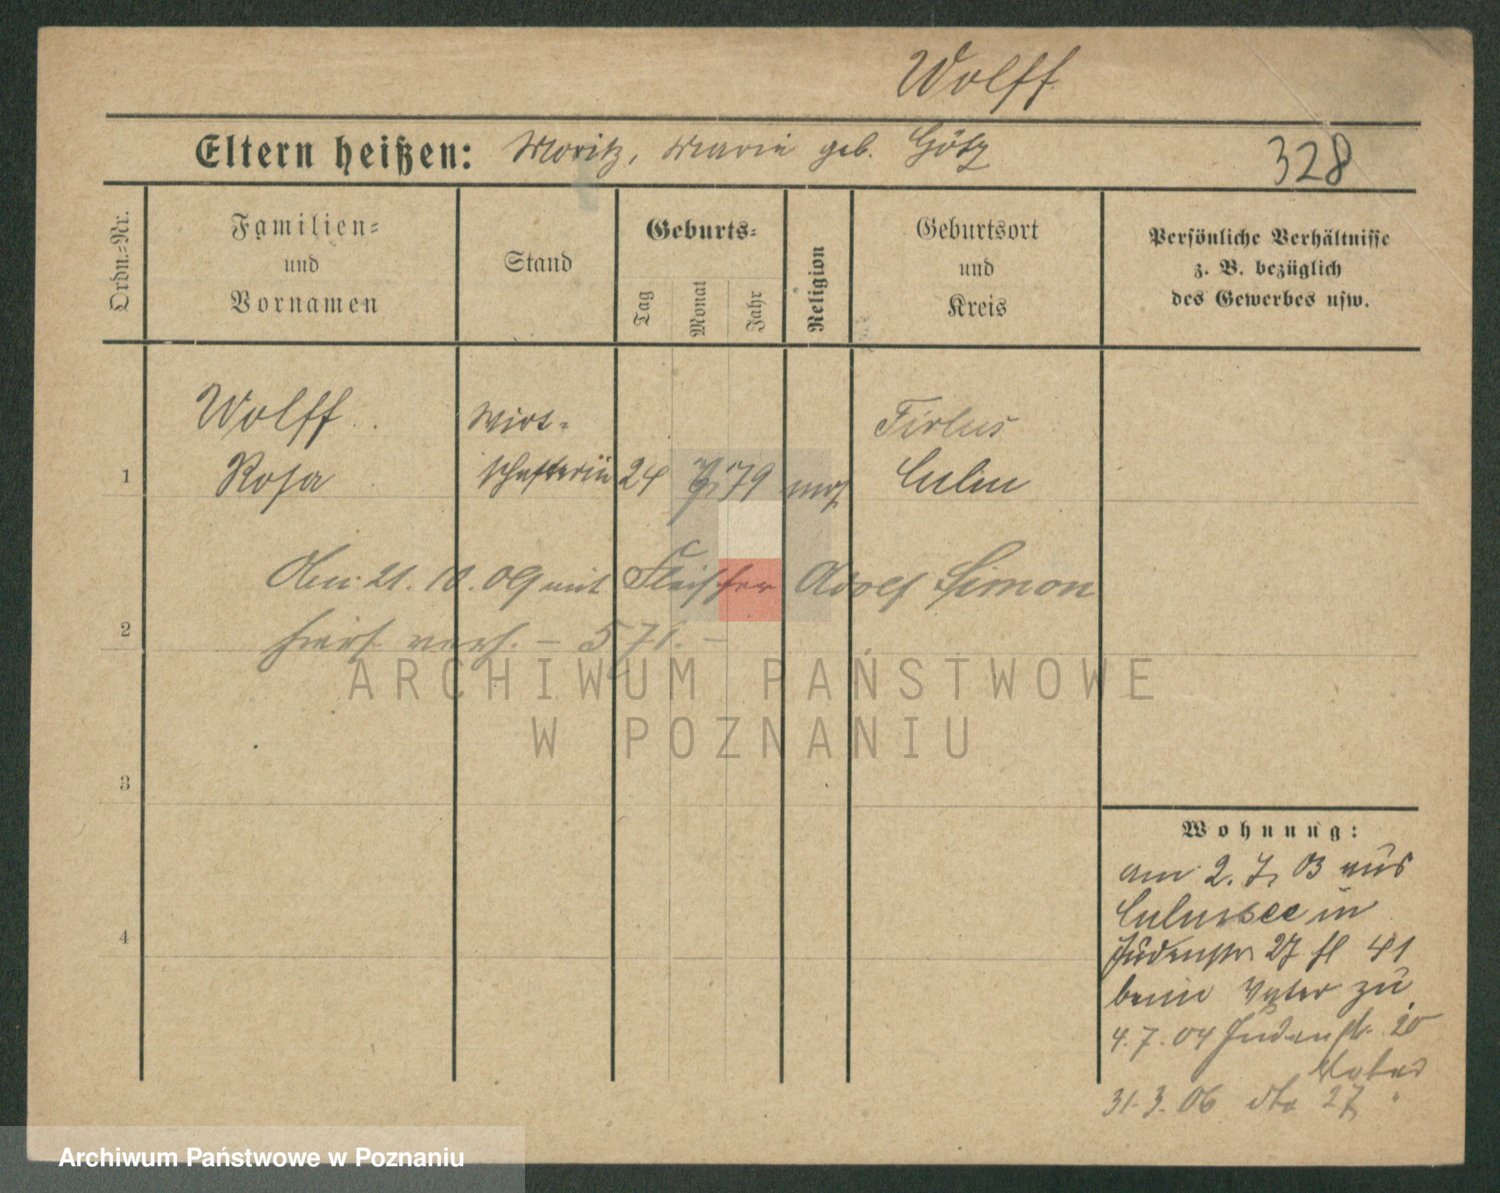 Wolff
Eltern heißen: Moritz, Marie geb. Götz
328
Ordn.-Nr.
Familien-
und
Vornamen
Stand
Geburts-
Tag
Monat
Jahr
Religion
Geburtsort
und
Kreis
Persönliche Verhältnisse
z. B. bezüglich
des Gewerbes usw.
Wolff
Wirt-
Firlus
1
Rosa
schafterin
24
79
mos
Culm
Am 21. 10. 09 mit Fleischer Adolf Simon
2
hiers. verh. – 571. –
ARCHIWUM PAŃSTWOWE
W POZNANIU
3
4
Wohnung:
am 2. 7. 03 aus
Culmsee in
Judenstr 27 fl 41
beim Vater zu
4. 7. 04 Judenstr. 20
Vater
31. 3. 06 dto 27
Archiwum Państwowe w Poznaniu